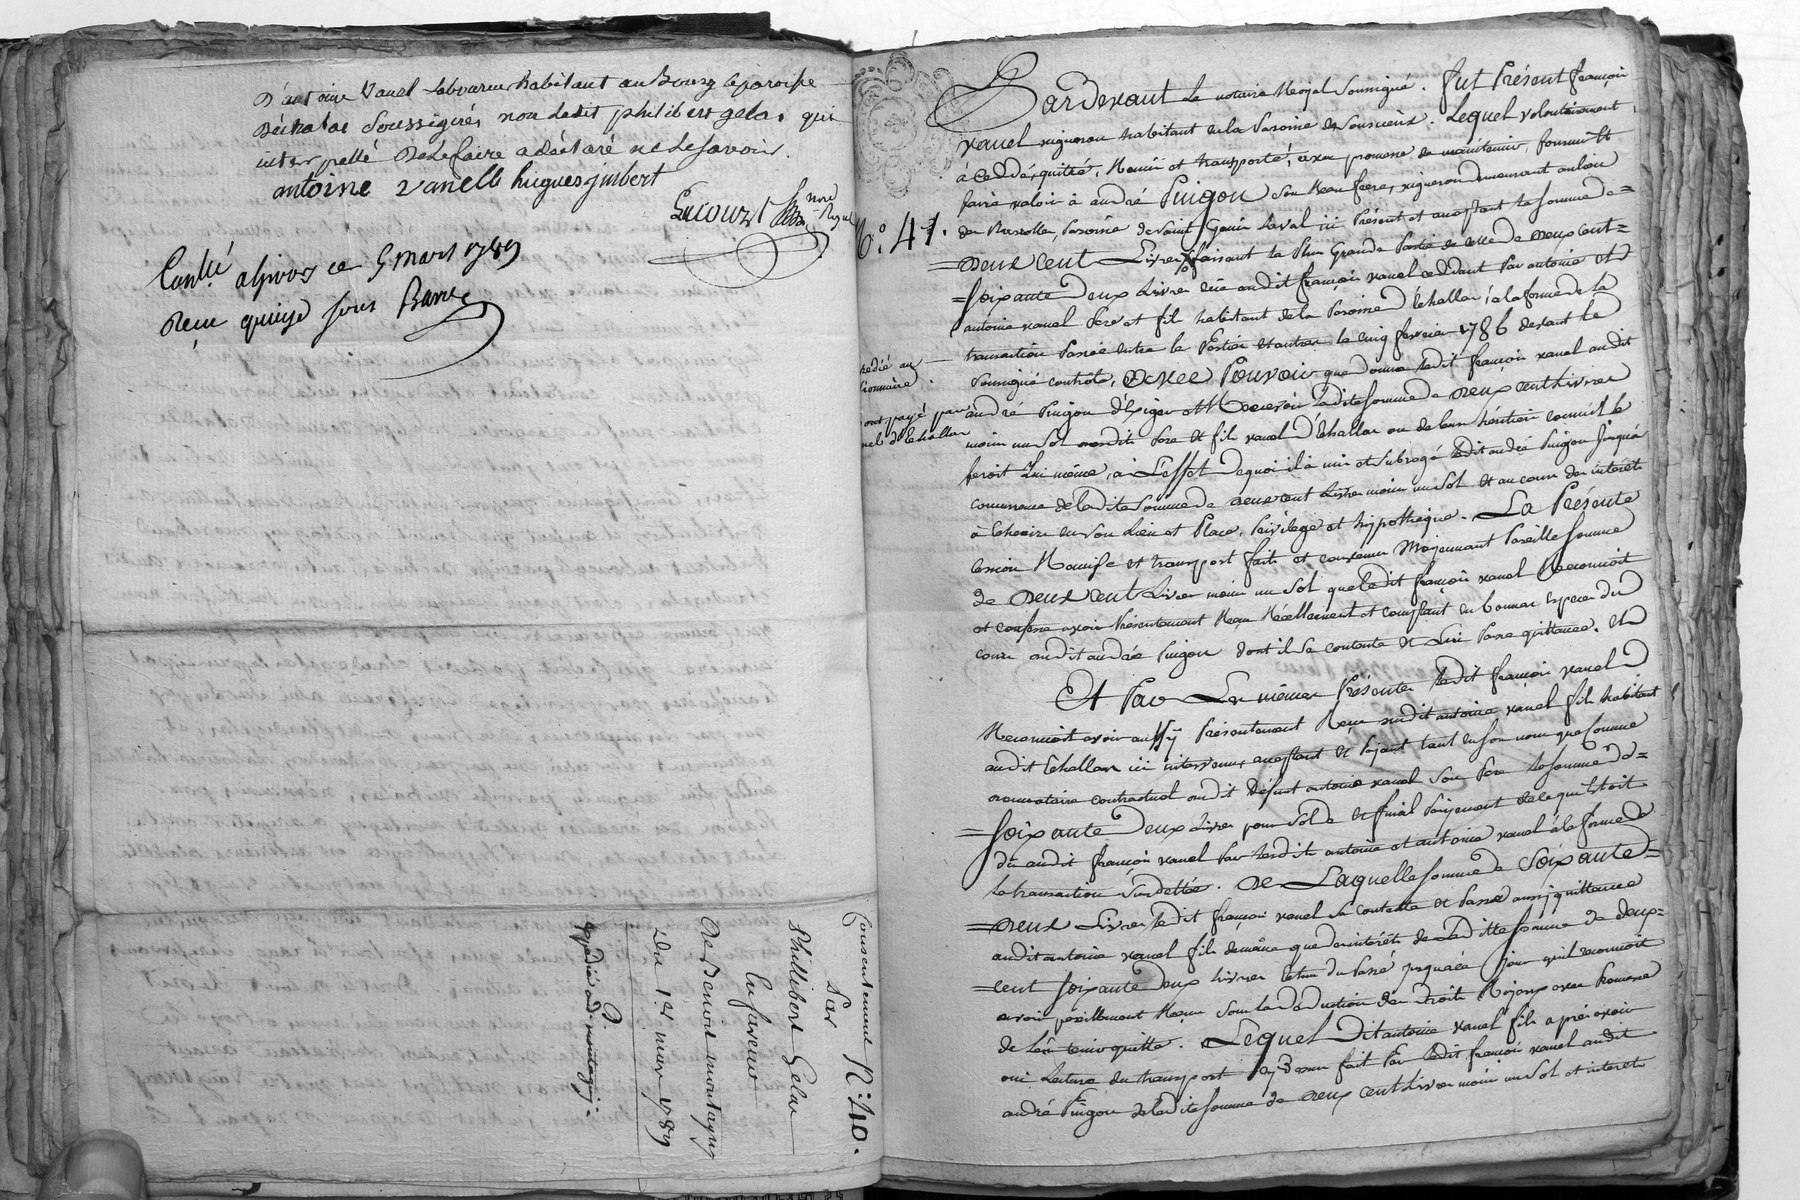 D'antoine Vanel laboureur habitant au Bourg & paroisse
D'échalas Soussignés non ledit philibert gelas qui
interpellé De le faire a déclaré ne le savoir.
antoine vanell hugues jmbert
nore
Royal
Conllé a givors ce 5 mars 1789
Reçu quinze sous
Consentement N: 40.
Par
Phillibert Gelas
En faveur
De Benoit montagny
Du 1er mars 1789
Expédié aud. montagny.
N.º 41.
Pardevant Le notaire Royal Soussigné. fut Présent françois
vanel vigneron habitant de la Paroisse de Soucieux. Lequel volontairement
à Cédé, quitté, Remis et transporté, avec promesse de maintenir, fournir et
faire valoir à andré Puigon Son Beau frere, vigneron demeurant au lieu
de Paroisse de Saint Genis Laval ici Présent et acceptant la somme de=
=Deux Cent Livres faisant la Plus Grande Partie de celle de Deux Cent=
=Soixante Deux Livres düe audit françois vanel cedant Par antoine et
antoine vanel Pere et fils habitant de la Paroisse d'Echallas, à la forme de la
transaction Passée entre les Parties le cinq fevrier 1786 devant le
Soussigné controlé, Avec Pouvoir que donne ledit françois vanel audit
andré Puigon d'Exiger et Recevoir ladite Somme de Deux Cent Livres
moins un Sol desdits Pere et fils vanel d'Echallas ou de leurs héritiers comme il le
feroit Lui même, à L'effet de quoi il a mis et Subrogé ledit andré Puigon jusqu'à
concurrence de ladite Somme de Deux cent Livres moins un Sol et au cours des intérêts
à Echeoir en Son Lieu et Place, Privilege et hyppotheque. La Présente
Cession Remise et transport faite et convenue Moyennant Pareille Somme
de Deux Cent Livres moins un Sol que ledit françois vanel Reconnoit
et confesse avoir Présentement Reçu Réellement et comptant en bonnes Especes du
cours audit andrée Puigon dont il Se contente et Lui Passe quittance. Et
Et Par Les mêmes Présentes Ledit françois vanel
Reconnoit avoir aussÿ Présentement Reçu dudit antoine vanel fils habitant
audit Echallas ici intervenu, acceptant et Payant tant en Son nom que Comme
donnataire contractuel audit Défunt antoine vanel Son Pere La Somme de=
=Soixante Deux Livres pour Solde et final Payement de ce qui Etoit
dü audit françois vanel Par lesdits antoine et antoine vanel à la forme de
la transaction Susdattée. De Laquelle Somme de Soixante=
=Deux Livres Ledit françois vanel Se contente et Passe aussi quittance
audit antoine vanel fils de même que des intérêts de Ladite Somme de deux=
=Cent Soixante Deux Livres du Passé jusqu'à ce jour qu'il reconnoit
avoir pareillement Reçu Sous la Déduction des droits Royaux avec Promesse
de L'en tenir quitte. Lequel Dit antoine vanel fils après avoir
oui Lecture du transport ci dessus fait Par Ledit françois vanel audit
andré Puigon de ladite Somme de Deux Cent Livres moins un Sol et interets